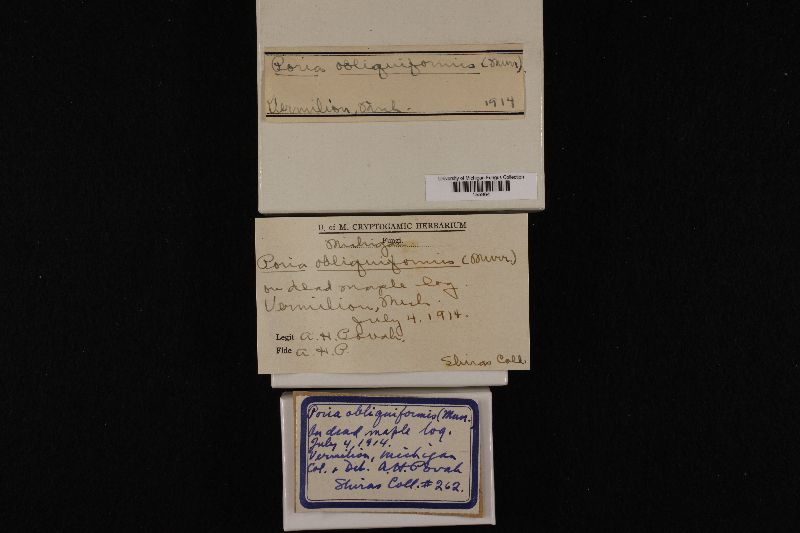 Poria obliquiformis (Murr).
Vermilion, Mich. 1914
University of Michigan Fungus Collection
U. of M. CRYPTOGAMIC HERBARIUM
Fungi.
Michigan
Poria obliquiformis (Murr.)
on dead maple log.
Vermilion, Mich.
July 4, 1914.
Legit A.H. Povah.
Fide A.H.P.
Shiras Coll.
Poria obliquiformis (Murr.
On dead maple log.
July 4, 1914.
Vermilion, Michigan
Col. & Det. A.H. Povah
Shiras Coll. # 262.